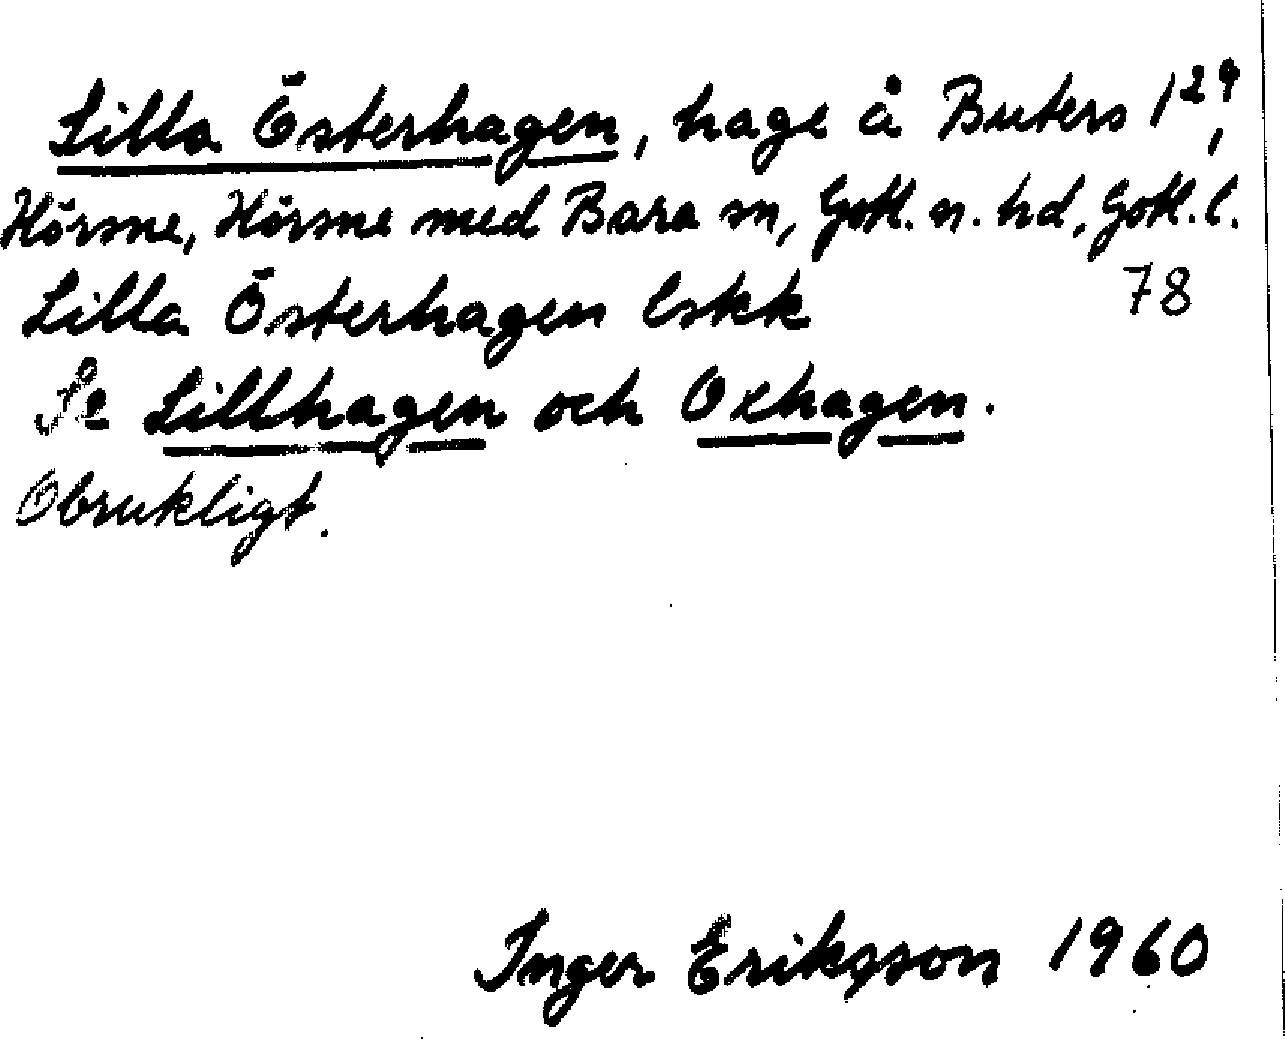 Lilla Österhagen, hage å Buters 1²⁹,
Hörsne, Hörsne med Bara sn, Gotl. n. hd, Gotl. l.
Lilla Österhagen lskk 78
Se Lillhagen och Oxhagen.
Obrukligt.
Inger Eriksson 1960